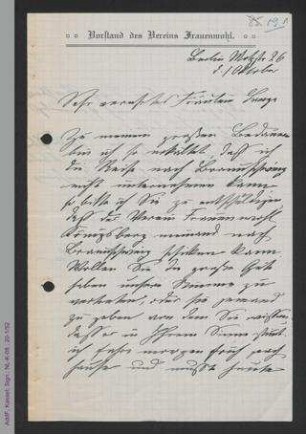 Vorstand des Vereins Frauenwohl.
Berlin Motzstr 26
d. 1 Oktober
Sehr verehrtes Fräulein Lange
Zu meinem großen Bedauern
bin ich so erkältet, daß ich
die Reise nach Braunschweig
nicht unternehmen kann
so bitte ich Sie zu entschuldigen
daß der Verein Frauenwohl
Königsberg niemand nach
Braunschweig schicken kann
Wollen Sie die große Güte
haben unsere Stimme zu
vertreten, oder sie jemand
zu geben von dem Sie wissen,
daß er in Ihrem Sinne stimmt
ich fahre morgen früh nach
Hause und mußte heute
AddF, Kassel, Sign.: NL-K-16; 20-1/52